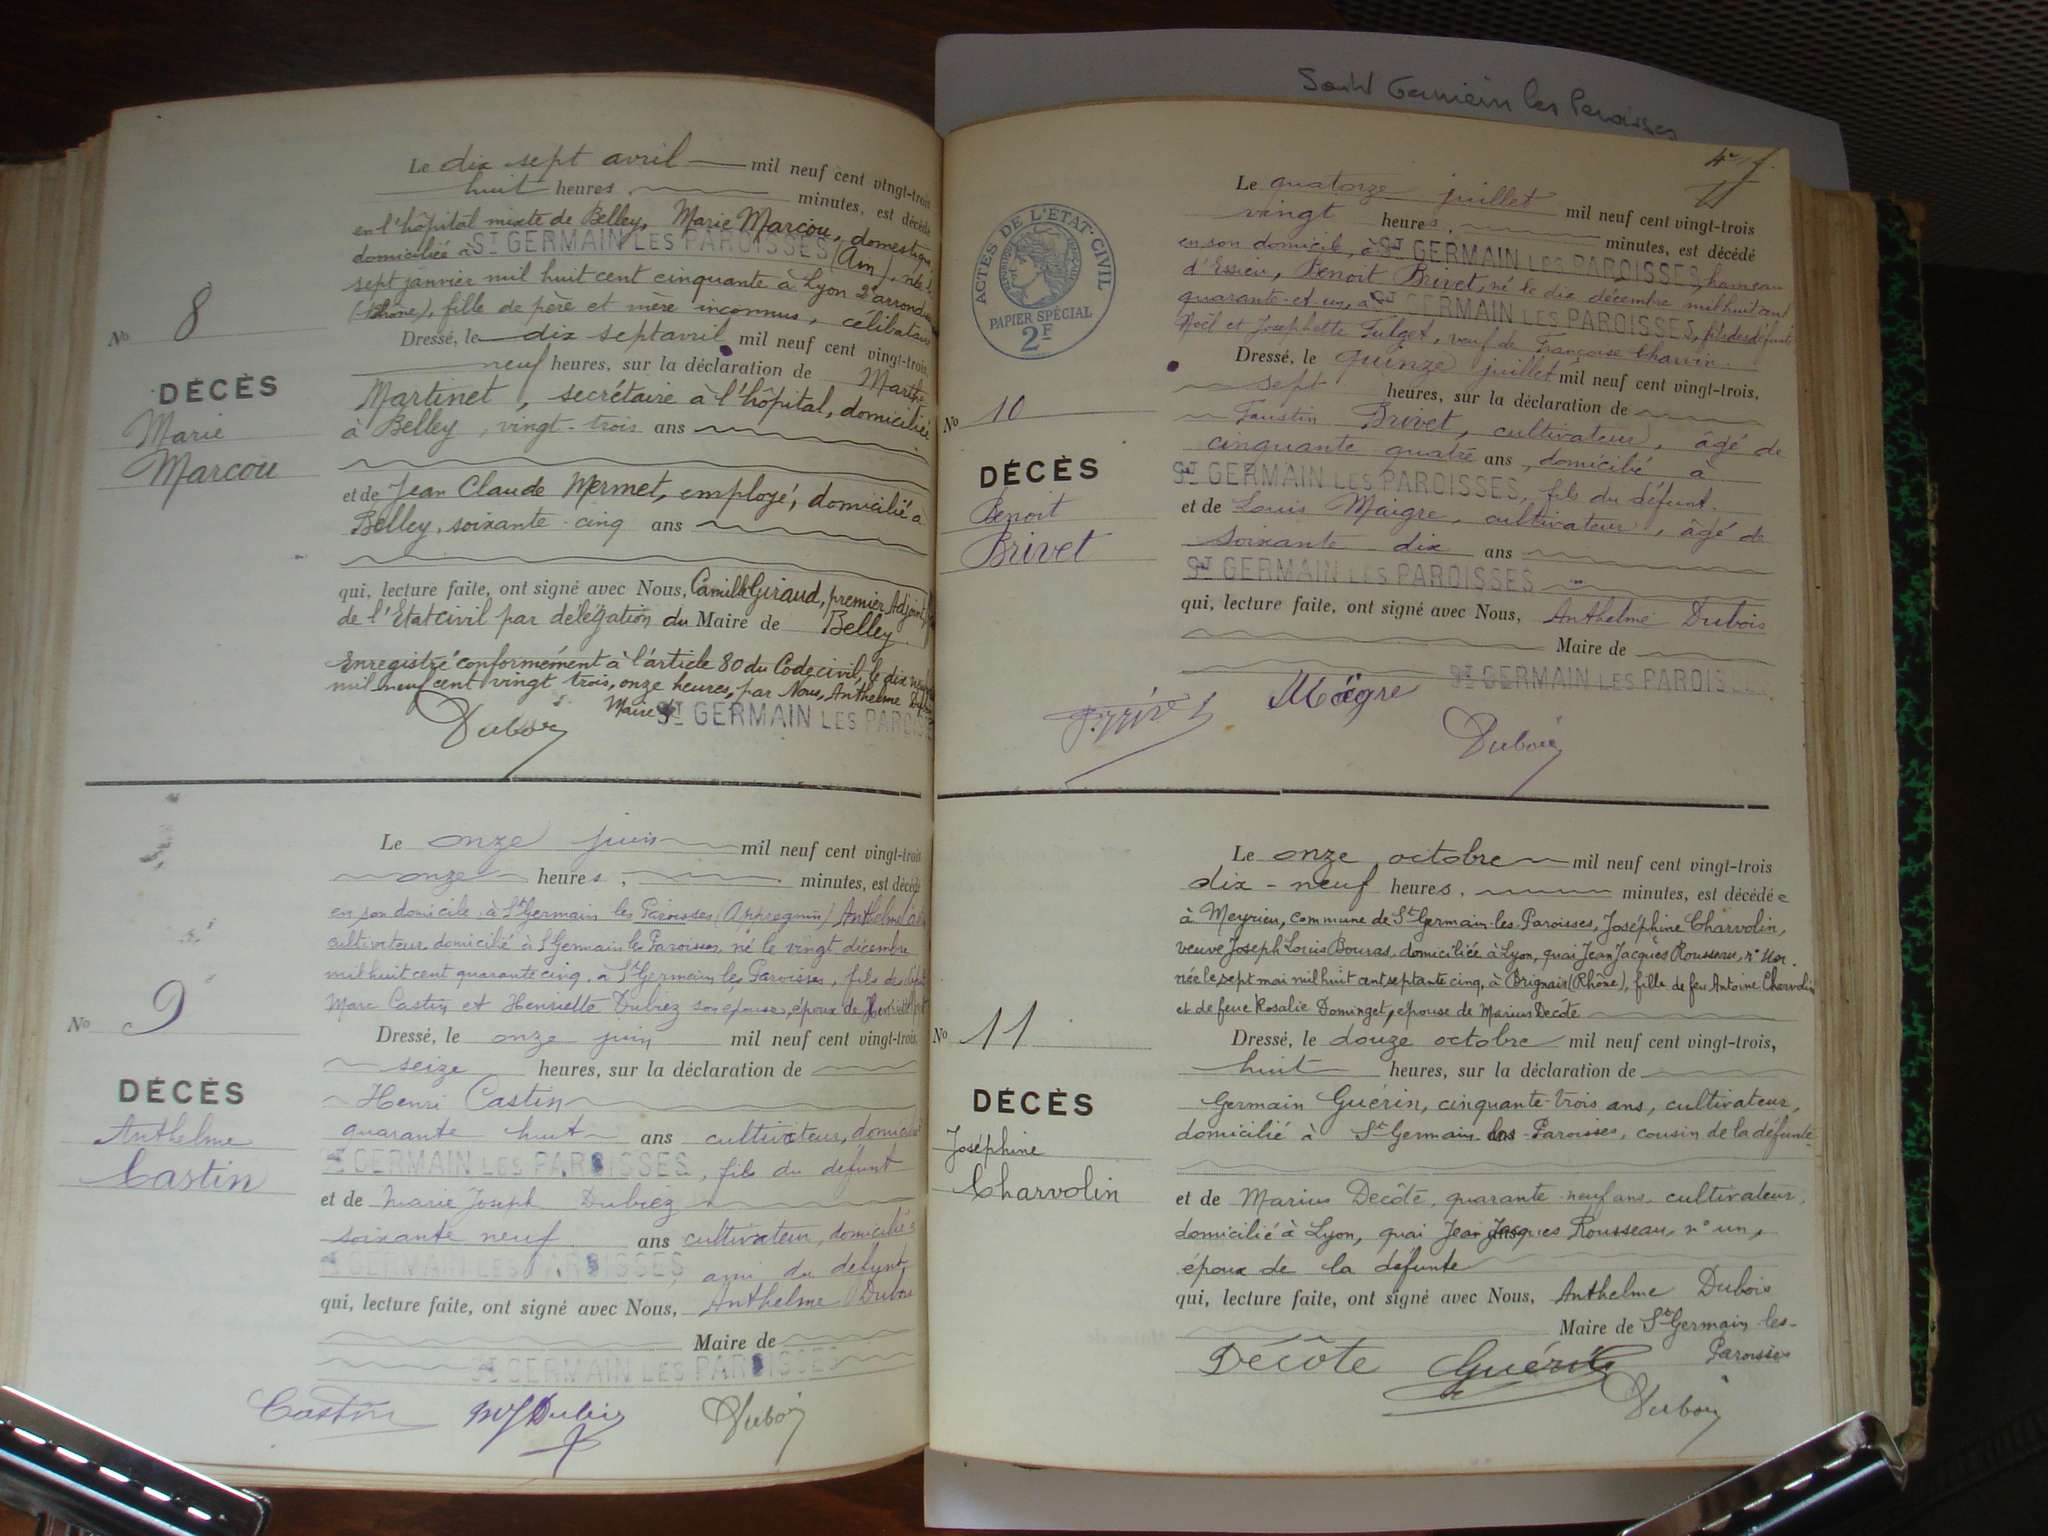 Saint Germain les Paroisses
Le dix sept avril mil neuf cent vingt-trois
huit heures, minutes, est décédé
en l'hôpital mixte de Belley, Marie Marcou, domestique
domiciliée à ST GERMAIN LES PAROISSES (Ain), née le
sept janvier mil huit cent cinquante à Lyon 2e arrond
(Rhône), fille de père et mère inconnus, célibataire
No 8
Dressé, le dix sept avril mil neuf cent vingt-trois,
neuf heures, sur la déclaration de Marthe
DÉCÈS
Marie
Marcou
Martinet, secrétaire à l'hôpital, domiciliée
à Belley, vingt-trois ans
et de Jean Claude Mermet, employé, domicilié à
Belley, soixante-cinq ans
qui, lecture faite, ont signé avec Nous, Camille Giraud, premier Adjoint,
de l'Etat civil par délégation du Maire de Belley
Enregistré conformément à l'article 80 du Code civil, le dix
mil neuf cent vingt trois, onze heures, par Nous, Anthelme
Maire ST GERMAIN LES PAROISSES
Dubois
Le onze juin mil neuf cent vingt-trois
onze heures, minutes, est décédé
en son domicile, à St Germain les Paroisses (Appregnin) Anthelme
cultivateur domicilié à St Germain les Paroisses, né le vingt décembre
mil huit cent quarante cinq, à St Germain les Paroisses, fils de
Marc Castin et Henriette Dubiez son épouse, époux de
No 9
Dressé, le onze juin mil neuf cent vingt-trois,
seize heures, sur la déclaration de
DÉCÈS
Anthelme
Castin
Henri Castin
quarante huit ans cultivateur, domicilié
ST GERMAIN LES PAROISSES, fils du défunt
et de Marie Joseph Dubiez
soixante neuf ans cultivateur, domicilié à
ST GERMAIN LES PAROISSES, ami du defunt,
qui, lecture faite, ont signé avec Nous, Anthelme Dubois
Maire de
ST GERMAIN LES PAROISSES
Castin MJ Dubiez Dubois
ACTES DE L'ÉTAT-CIVIL
PAPIER SPÉCIAL
2F
Le quatorze juillet mil neuf cent vingt-trois
vingt heures, minutes, est décédé
en son domicile, à ST GERMAIN LES PAROISSES, hameau
d'Essieu, Benoit Brivet, né le dix décembre mil huit cent
quarante-et-un, à ST GERMAIN LES PAROISSES, fils des défunts
Noël et Josephette Fulget, veuf de Françoise Charvin.
Dressé, le quinze juillet mil neuf cent vingt-trois,
sept heures, sur la déclaration de
No 10
DÉCÈS
Benoit
Brivet
Faustin Brivet, cultivateur, âgé de
cinquante quatre ans, domicilié à
ST GERMAIN LES PAROISSES, fils du défunt.
et de Louis Maigre, cultivateur, âgé de
soixante dix ans
ST GERMAIN LES PAROISSES
qui, lecture faite, ont signé avec Nous, Anthelme Dubois
Maire de
ST GERMAIN LES PAROISSES
Maigre
Dubois
Le onze octobre mil neuf cent vingt-trois
dix-neuf heures, minutes, est décédée
à Meyrieu, commune de St Germain-les-Paroisses, Joséphine Charvolin,
veuve Joseph Louis Bouras, domiciliée à Lyon, quai Jean Jacques Rousseau, no un.
née le sept mai mil huit cent septante cinq, à Brignais (Rhône), fille de feu Antoine Charvolin
et de feue Rosalie Dominget, épouse de Marius Decôte
No 11
Dressé, le douze octobre mil neuf cent vingt-trois,
huit heures, sur la déclaration de
DÉCÈS
Joséphine
Charvolin
Germain Guérin, cinquante-trois ans, cultivateur,
domicilié à St Germain-les-Paroisses, cousin de la défunte
et de Marius Decôte, quarante-neuf ans, cultivateur,
domicilié à Lyon, quai Jean Jacques Rousseau, no un,
époux de la défunte
qui, lecture faite, ont signé avec Nous, Anthelme Dubois
Maire de St Germain-les-
Paroisses
Décôte Guérin
Dubois